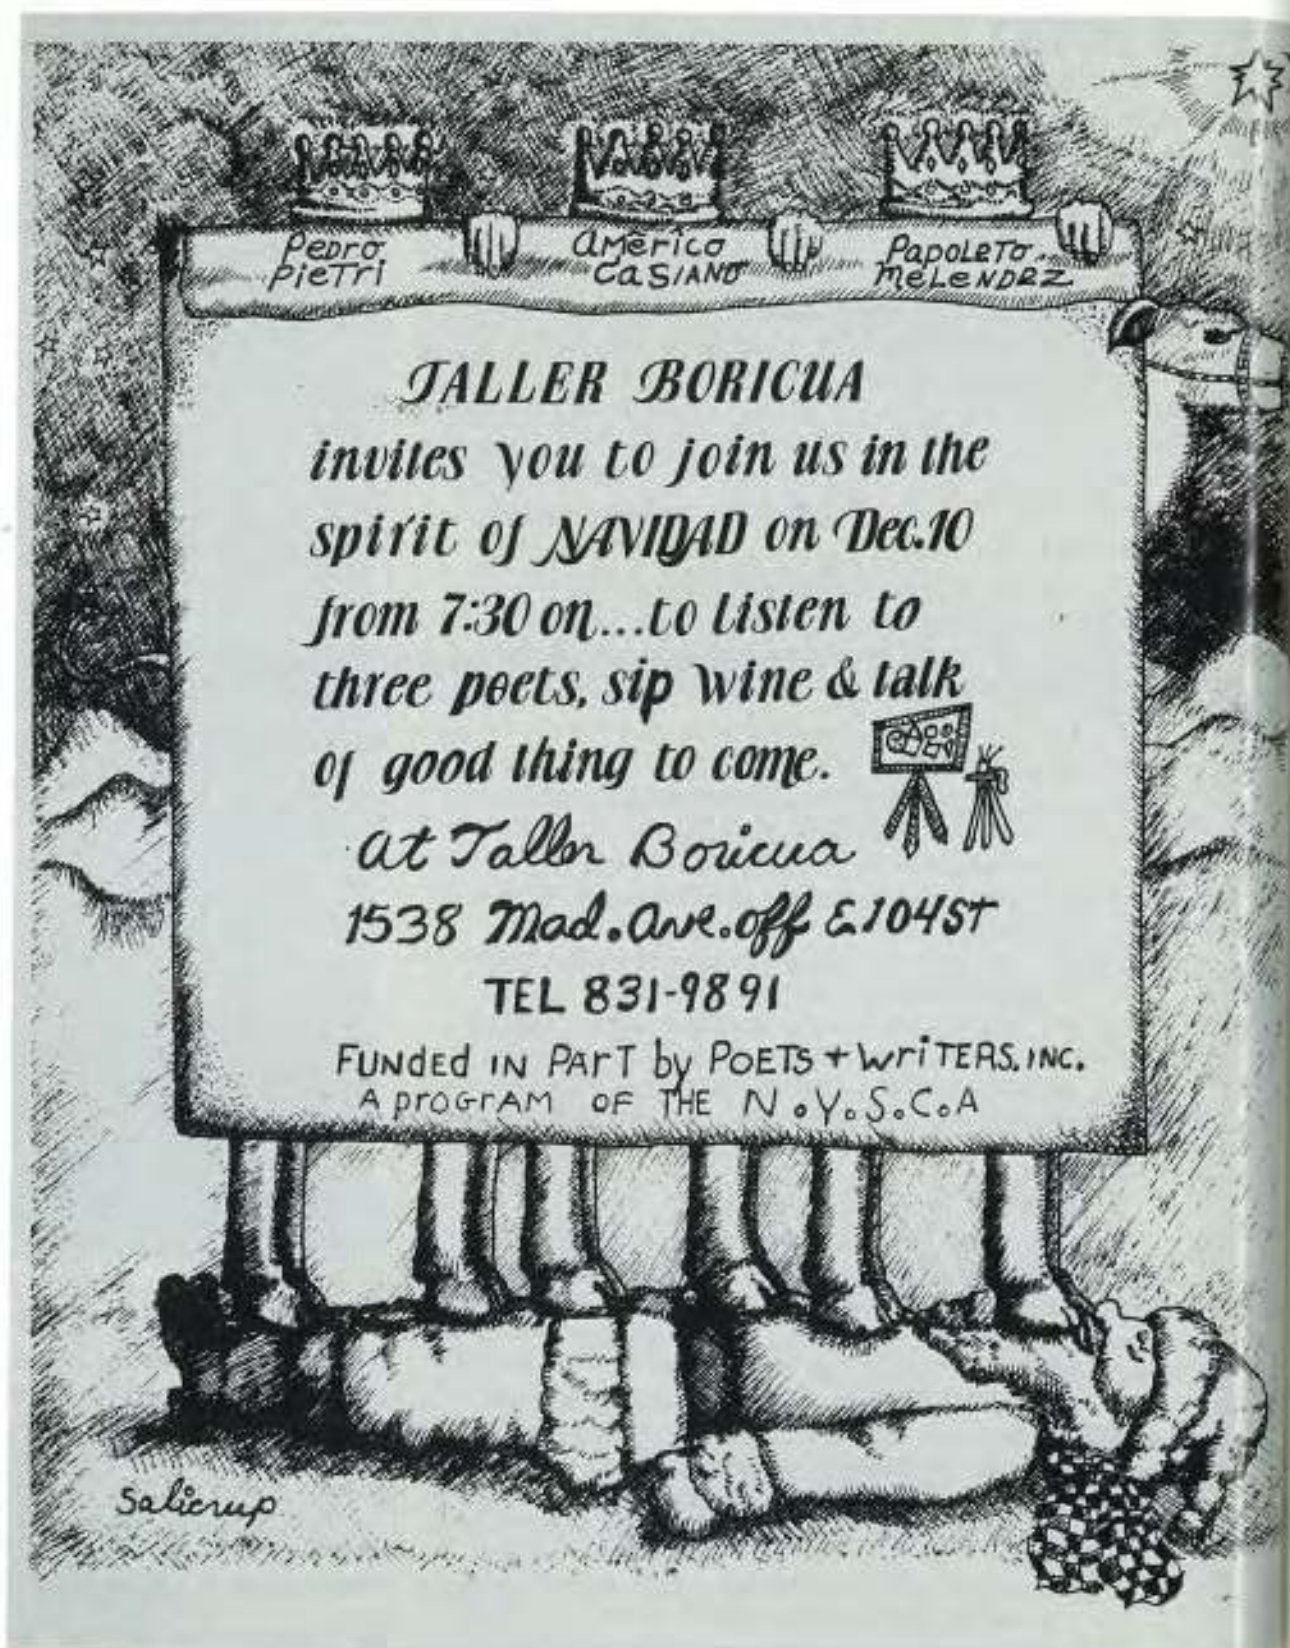 Pedro Pietri
Américo Casiano
Papoleto Melendez
TALLER BORICUA
invites you to join us in the
spirit of NAVIDAD on Dec.10
from 7:30 on...to listen to
three poets, sip wine & talk
of good thing to come.
at Taller Boricua
1538 Mad. Ave. off E.104ST
TEL 831-9891
FUNDED IN PART by POETS + WRITERS. INC.
A PROGRAM OF THE N.Y.S.C.A
Salicrup